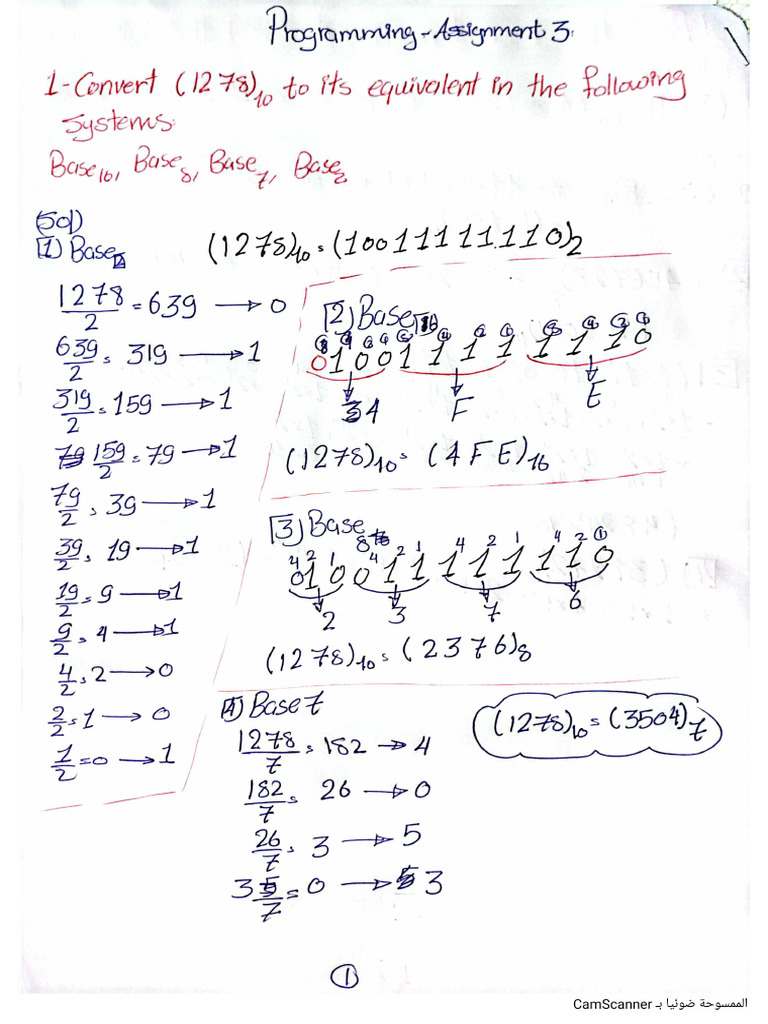 Programming - Assignment 3.
1-Convert (1278)10 to its equivalent in the following
systems.
Base16, Base8, Base7, Base2
(Sol)
[1] Base2
(1278)10 = (10011111110)2
1278/2 = 639 → 0
639/2 = 319 → 1
319/2 = 159 → 1
159/2 = 79 → 1
79/2 = 39 → 1
39/2 = 19 → 1
19/2 = 9 → 1
9/2 = 4 → 1
4/2 = 2 → 0
2/2 = 1 → 0
1/2 = 0 → 1
[2] Base16
8 4 2 1 8 4 2 1 8 4 2 1
0 1 0 0 1 1 1 1 1 1 1 0
4 F E
(1278)10 = (4FE)16
[3] Base8
4 2 1 4 2 1 4 2 1 4 2 1
0 1 0 0 1 1 1 1 1 1 1 0
2 3 7 6
(1278)10 = (2376)8
[4] Base 7
1278/7 = 182 → 4
182/7 = 26 → 0
26/7 = 3 → 5
3/7 = 0 → 3
(1278)10 = (3504)7
1
الممسوحة ضوئيا بـ CamScanner